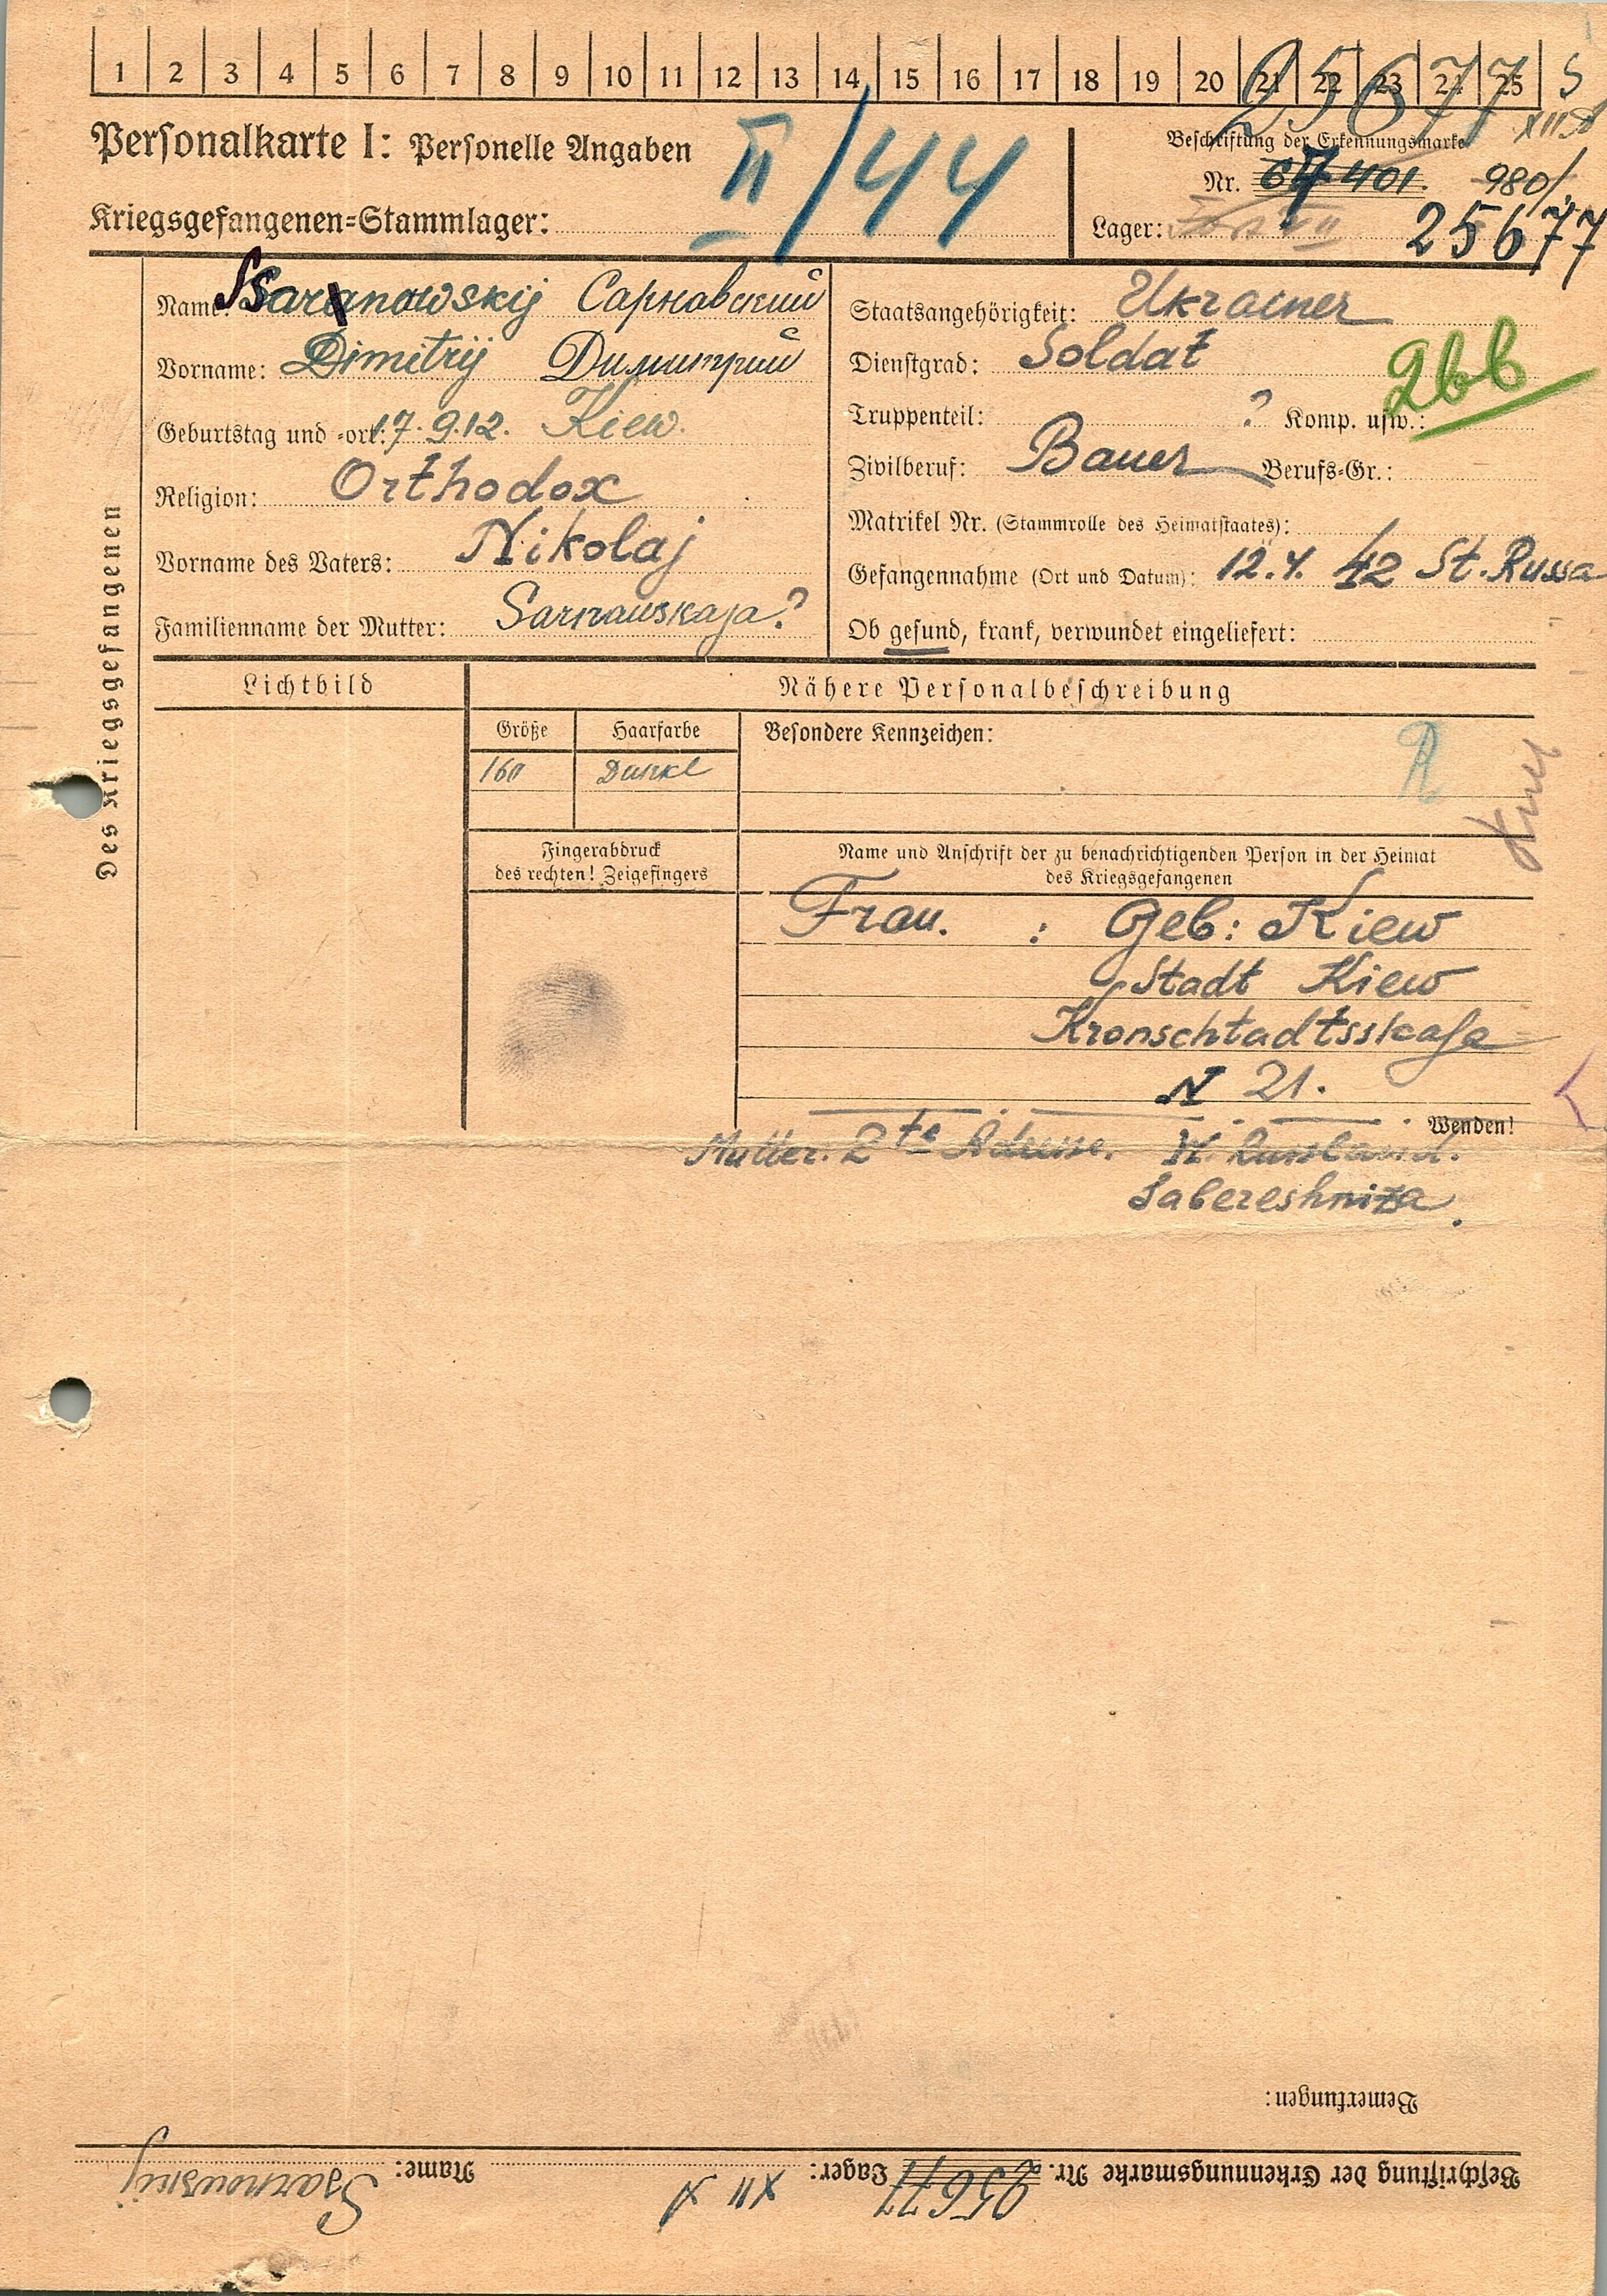 1 2 3 4 5 6 7 8 9 10 11 12 13 14 15 16 17 18 19 20 21 22 23 24 25 S
25677 XII A
Personalkarte I: Personelle Angaben
II/44
Beschriftung der Erkennungsmarke
Nr. 401. 980/
Kriegsgefangenen=Stammlager:
Lager: 25677
Des Kriegsgefangenen
Name: Ssarnowskij Сарновский
Vorname: Dimitrij Димитрий
Geburtstag und =ort: 17.9.12. Kiew.
Religion: Orthodox
Vorname des Vaters: Nikolaj
Familienname der Mutter: Sarnauskaja?
Staatsangehörigkeit: Ukrainer
Dienstgrad: Soldat
2bb
Truppenteil: ? Komp. usw.:
Zivilberuf: Bauer Berufs=Gr.:
Matrikel Nr. (Stammrolle des Heimatstaates):
Gefangennahme (Ort und Datum): 12.4. 42 St. Russa
Ob gesund, krank, verwundet eingeliefert:
Lichtbild
Nähere Personalbeschreibung
Größe Haarfarbe Besondere Kennzeichen:
160 Dunkl
R
Fingerabdruck
des rechten! Zeigefingers
Name und Anschrift der zu benachrichtigenden Person in der Heimat
des Kriegsgefangenen
Frau. : Geb: Kiew
Stadt Kiew
Kronschtadtsskaja
N 21.
Wenden!
Mutter. 2te Adresse. W. Russland.
Sabereshniza.
Bemerkungen:
Beschriftung der Erkennungsmarke Nr. 25677 Lager: XII A Name: Ssarnowskij